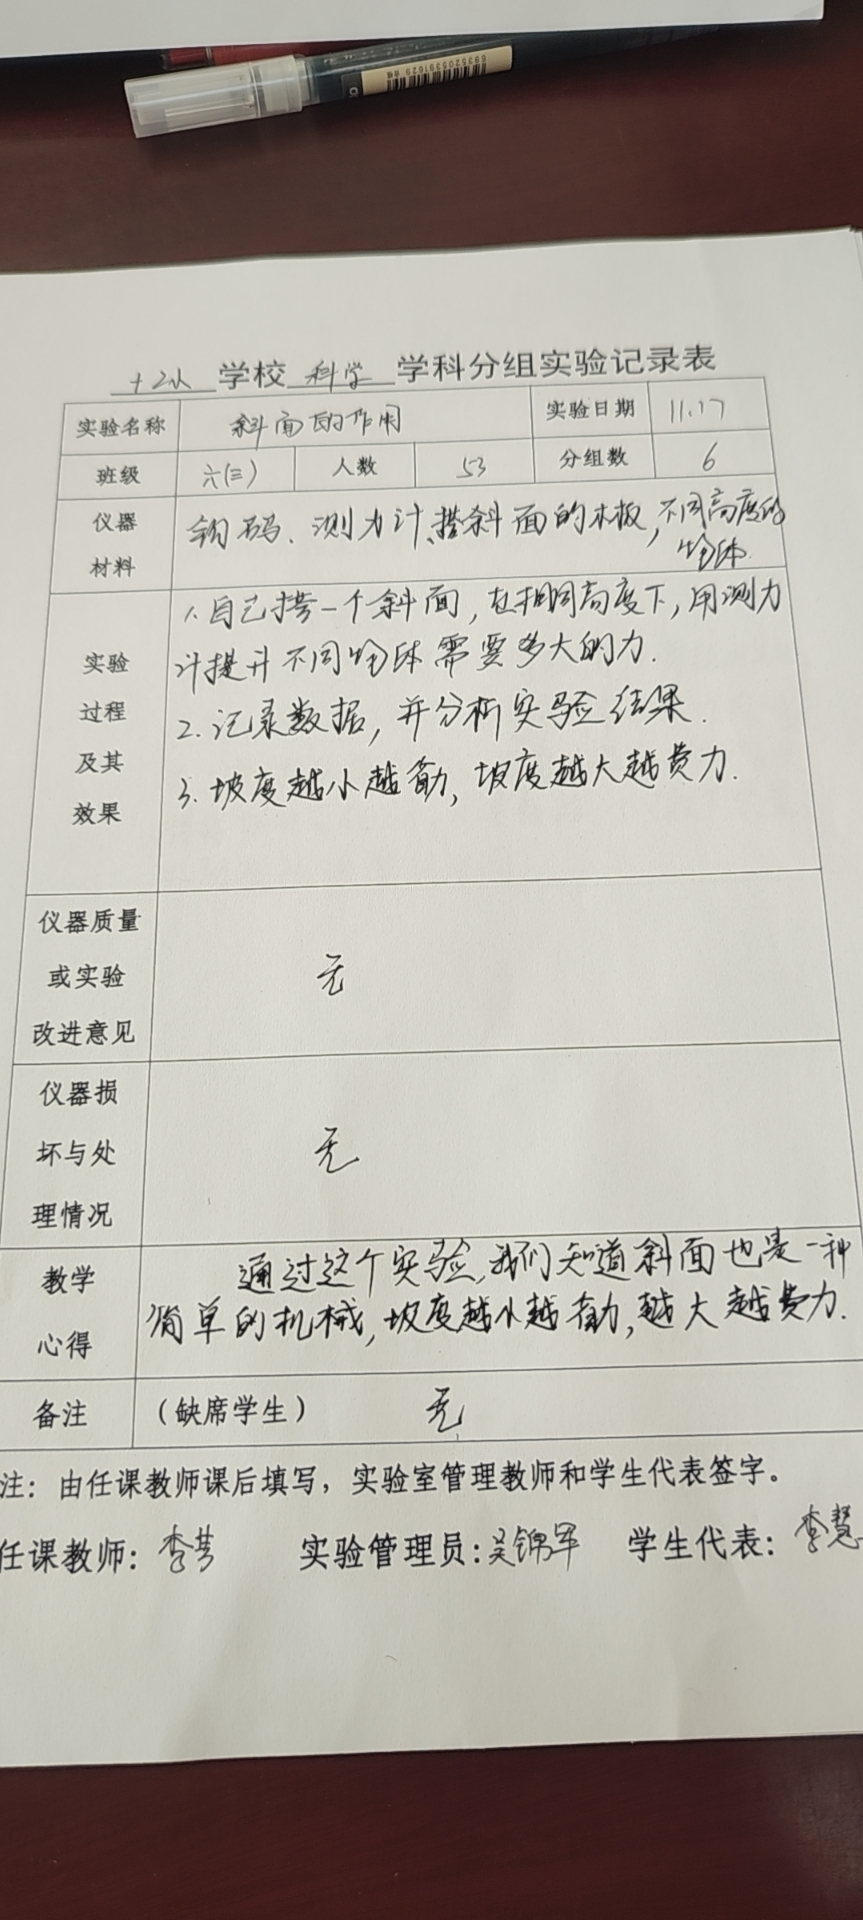 6935205391629
十2小 学校 科学 学科分组实验记录表
实验名称 斜面的作用 实验日期 11.17
班级 六(三) 人数 53 分组数 6
仪器材料 钩码、测力计、搭斜面的木板,不同高度的
物体.
实验过程及其效果
1.自己搭一个斜面,在相同高度下,用测力
计提升不同物体需要多大的力.
2.记录数据,并分析实验结果.
3.坡度越小越省力,坡度越大越费力.
仪器质量或实验改进意见 无
仪器损坏与处理情况 无
教学心得 通过这个实验,我们知道斜面也是一种
简单的机械,坡度越小越省力,越大越费力.
备注 (缺席学生) 无
注:由任课教师课后填写,实验室管理教师和学生代表签字。
任课教师: 李 实验管理员:吴锦军 学生代表: 李慧